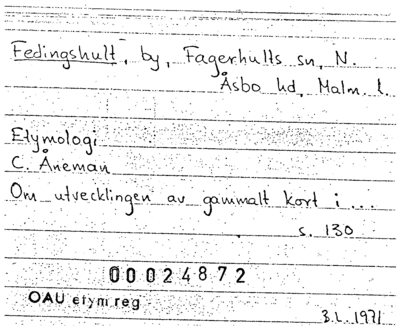 Fedingshult, by, Fagerhults sn, N.
Åsbo hd, Malm. l.
Etymologi
C. Åneman
Om utvecklingen av gammalt kort i...
s. 130
00024872
OAU etym reg
B.L. 1971